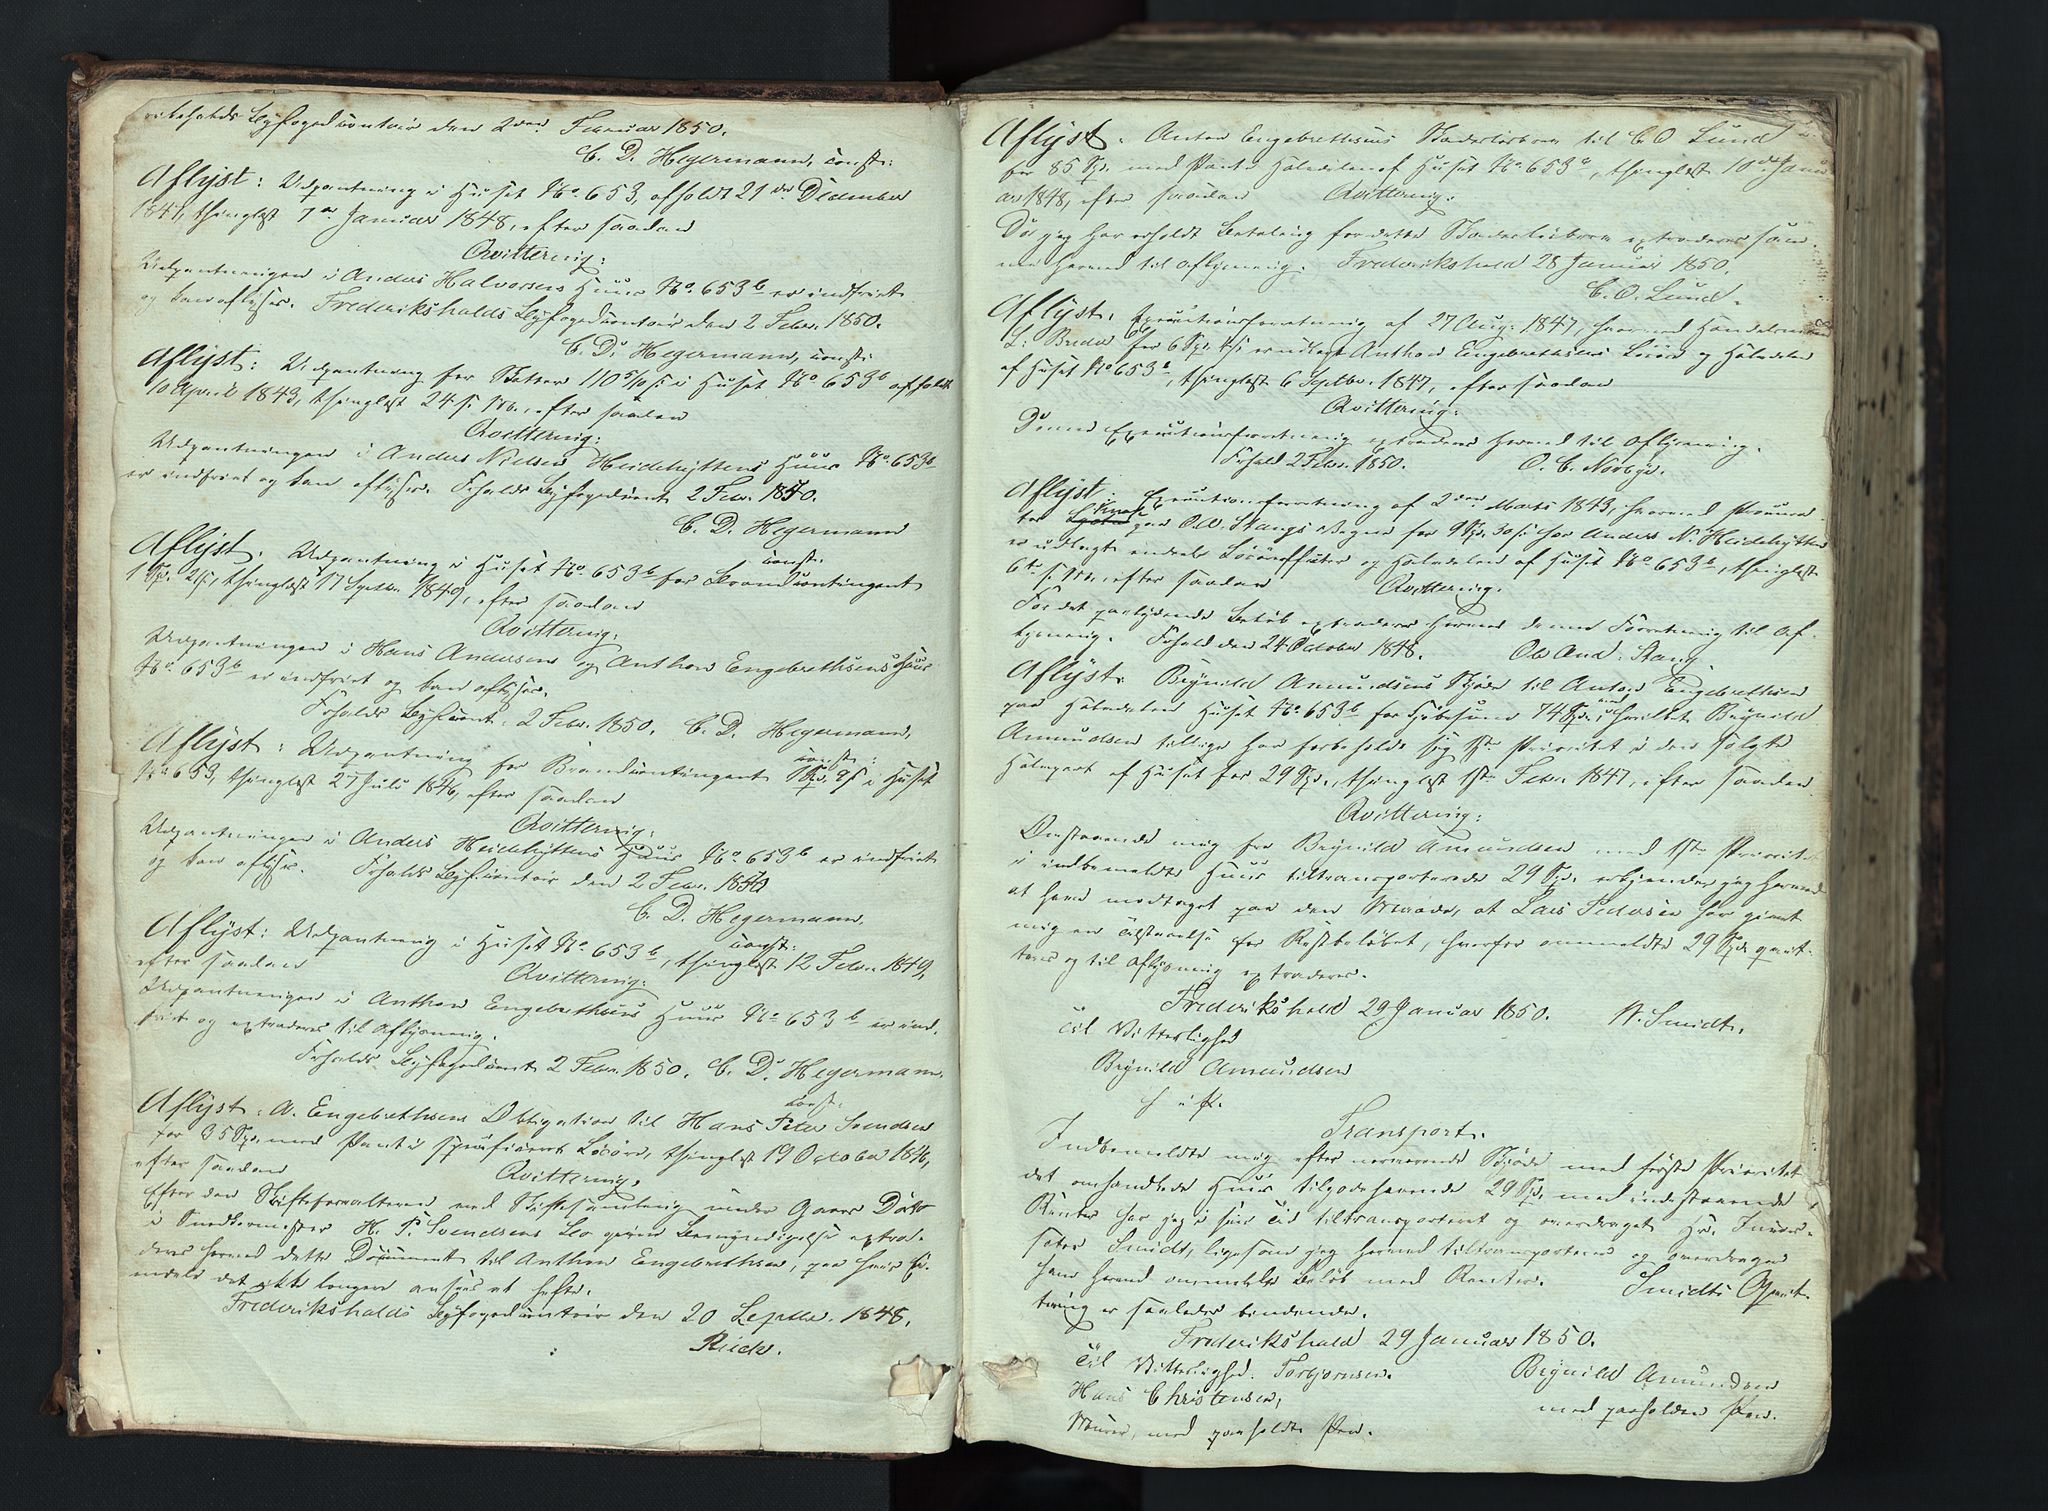 Byfogedcontoir den 2den Februar 1850.
C. D. Hegermann, const:
Aflyst: Udpantning i Huset No 653, afholdt 21de December
1847, thinglæst 7de Januar 1848, efter saadan
Qvittering:
Udpantningen i Anders Halvorsens Huus No 653b er indfriet
og kan aflyses. Frederikshalds Byfogedcontoir den 2 Febr. 1850.
C. D. Hegermann, const:
Aflyst: Udpantning for Skatter 110 5/10 s i Huset No 653b afholdt
10 April 1843, thinglæst 24 s. M., efter saadan
Qvittering:
Udpantningen i Anders Nielsen Heidehyttens Huus No 653b
er indfriet og kan aflyses. Frhalds Byfogedcont 2 Febr. 1850.
C. D. Hegermann
const:
Aflyst: Udpantning i Huset No 653b for Brandcontingent
1 Spd. 2 s, thinglæst 17 Septbr. 1849, efter saadan
Qvittering:
Udpantningen i Hans Andersens og Anthon Engebrethsens Huus
No 653b er indfriet og kan aflyses.
Frhalds Byfcont: 2 Febr. 1850. C. D. Hegermann,
const:
Aflyst: Udpantning for Brandcontingent 1 Spd. 9 s i Huset
No 653, thinglæst 27 Juli 1846, efter saadan
Qvittering:
Udpantningen i Anders Heidehyttens Huus No 653b er indfriet
og kan aflyses. Frhalds Byfcontoir den 2 Febr. 1850
C. D. Hegermann,
const:
Aflyst: Udpantning i Huset No 653b, thinglæst 12 Febr. 1849,
efter saadan
Qvittering:
Udpantningen i Anthon Engebrethsens Huus No 653b er ind-
friet og extraderes til Aflysning.
Frhalds Byfogedcont 2 Febr. 1850. C. D. Hegermann,
const:
Aflyst: A. Engebrethsens Obligation til Hans Peter Svendsen
for 35 Spd. med Pant i specificeret Løsøre, thinglæst 19 October 1846,
efter saadan
Qvittering.
Efter den Skifteforvalteren ved Skiftesamling under Gaars Dato
i Snedkermester H. P. Svendsens Bo given Bemyndigelse extra-
deres herved dette Document til Anthon Engebrethsen, paa hvis Ei-
endele det ikke længere ansees at hefte.
Frederikshalds Byfogedcontoir den 20 Septbr. 1848.
Rieck.
Aflyst: Anton Engebrethsens Skadesløsbrev til C. O. Lund
for 85 Spd. med Pant i Halvdelen af Huset No 653a, thinglæst 10de Janu-
ar 1848, efter saadan Qvittering:
Da jeg har erholdt Betaling for dette Skadesløsbrev extraderes sam-
me herved til Aflysning. Frederikshald 28 Januar 1850.
C. O. Lund.
Aflyst: Executionsforretning af 27 Aug: 1847, hvorved Handelsmand
L: Brede for 6 Spd. er udlagt Anthon Engebrethsens Løsøre og Halvdelen
af Huset No 653b, thinglæst 6 Septbr. 1847, efter saadan
Qvittering:
Denne Executionsforretning extraderes herved til Aflysning.
Frhald 2 Febr. 1850. O. C. Norbye.
Aflyst: Executionsforretning af 2den Marts 1843, hvorved Procura-
tor paa Ol. Stangs Vegne for 9 Spd. 30 s hos Anders N. Heidehytten
er udlagt endeel Løsøreeffecter og Halvdelen af Huset No 653b, thinglæst
6te s. M., efter saadan Qvittering.
For det paalydende Beløb extraderes herved denne Forretning til Af-
lysning. Frhald den 24 October 1848. Ole And: Stang.
Aflyst: Brynild Amundsens Skjøde til Anton Engebrethsen
paa Halvdelen Huset No 653b for Kjøbesum 74 Spd., ved hvilket Brynild
Amundsen tillige har forbeholdt sig 1ste Prioritet i den solgte
Halvpart af Huset for 29 Spd., thinglæst 1ste Febr. 1847, efter saadan
Qvittering:
Omstaaende mig fra Brynild Amundsen med 1ste Prioritet
i indbemeldte Huus tiltransporterede 29 Spd. erkjender jeg herved
at have modtaget paa den Maade, at Lars Pedersen har givet
mig en Tilstaaelse for Restbeløbet, hvorfor ommeldte 29 Spd. qvit-
teres og til Aflysning extraderes.
Frederikshald 29 Januar 1850. N. Smidt.
Til Vitterlighed
Brynild Amundsen
Transport.
Indbemeldte mig efter nærværende Skjøde med første Prioritet
det omhandlede Huus tilgodehavende 29 Spd. med indestaaende
Renter har jeg i sin Tid tiltransporteret og overdraget Hr.
Smidt, ligesom jeg herved tiltransporterer og overdrager
ham herved ommeldte Beløb med Renter. Smidts Qvit-
tering er saaledes bindende.
Frederikshald 29 Januar 1850.
Til Vitterlighed: Torbjornsen. Brynild Amundsen
Hans Christensen, med paaholden Pen.
Murer, med paaholdt Pen.